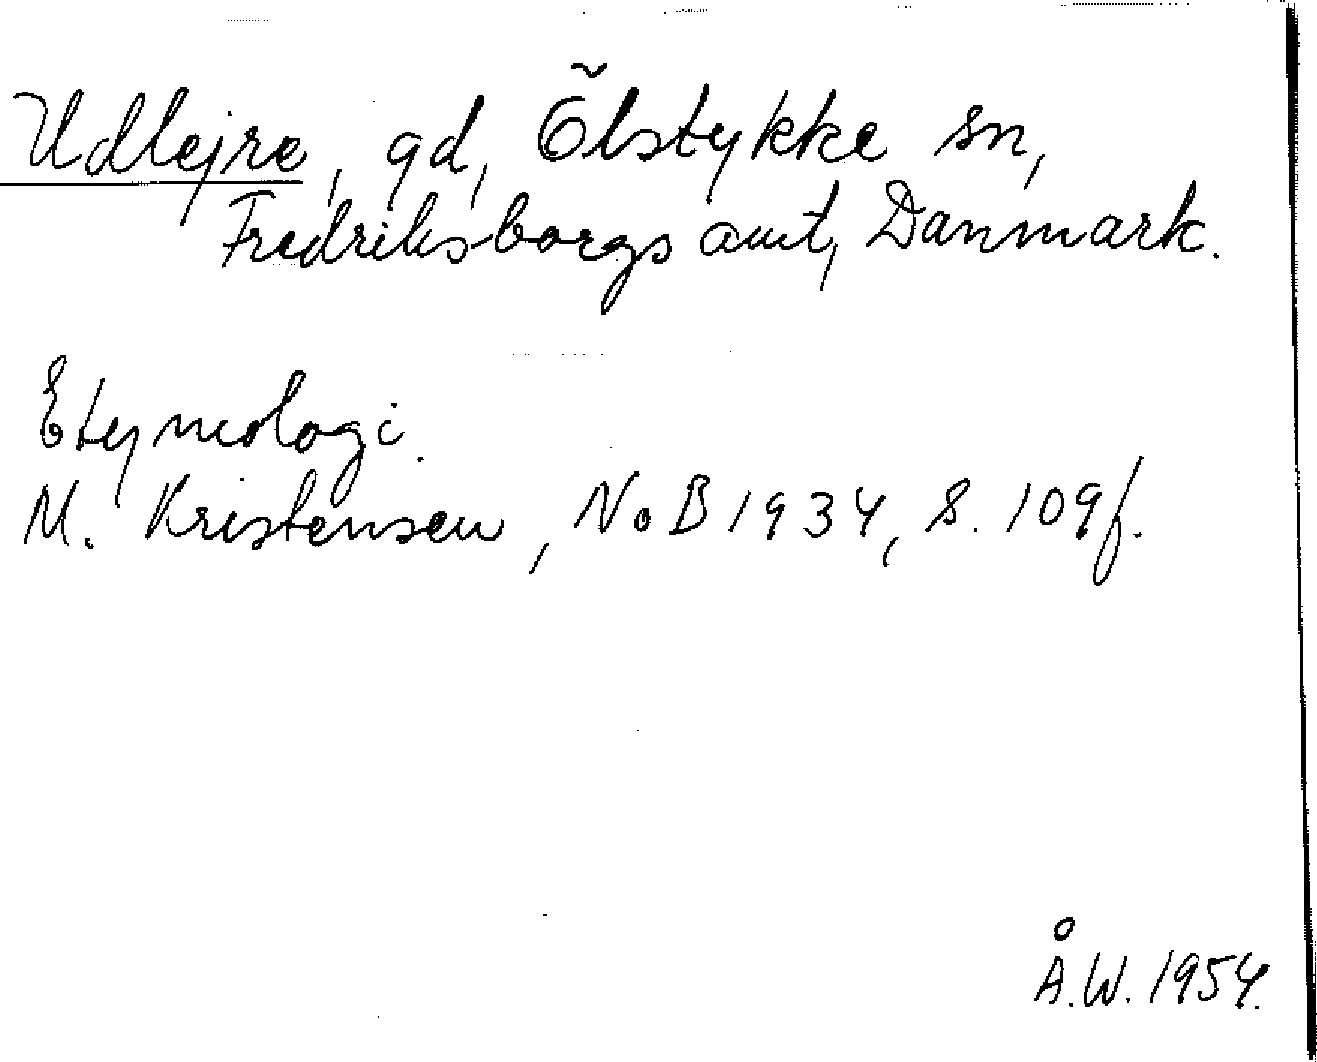 Udlejre, gd, Ölstykke sn,
Fredriksborgs amt, Danmark.
Etymologi.
M. Kristensen, NoB 1934, S. 109f.
Å.W. 1954.